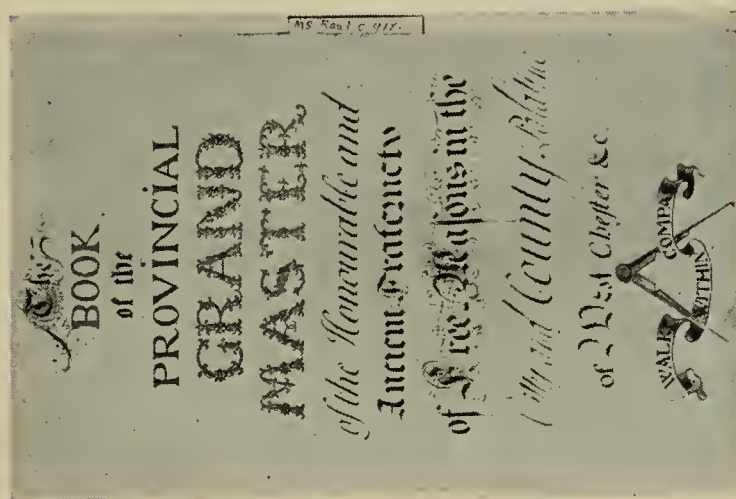 MS Rawl C 918.
The
BOOK
of the
PROVINCIAL
GRAND
MASTER
of the Honourable and
Ancient Fraternety
of Free Masons in the
Citty and County Palatine
of West Chester &c.
WALK WITHIN COMPA